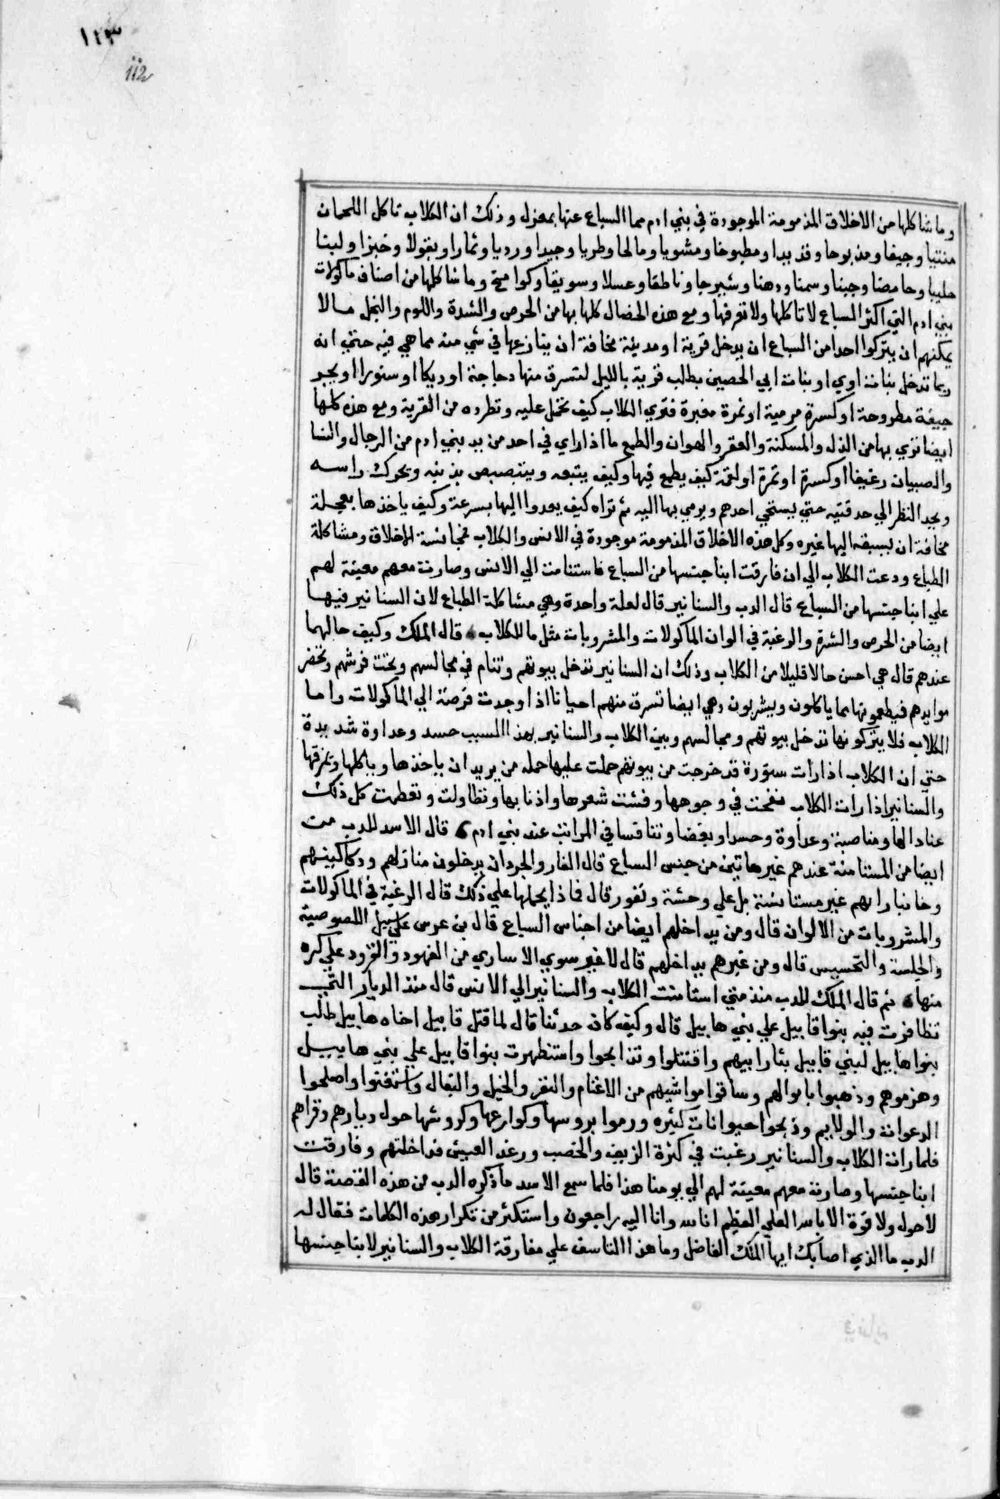 ١١٣
112
وما شاكلها من الاخلاق المذمومة الموجودة في بني ادم مما السباع عنها بمعزل وذلك ان الكلاب تاكل اللحمان
منتنيا وجيفا ومذبوحا وقديدا ومطبوخا ومشويا ومالحا وطريا وجيدا ورديا وثمارا وبقولا وخبزا ولبنا
حليبا وحامضا وجبنا وسمنا ودهنا وشيرجا وناطفا وعسلا وسويقا وكوامخ وما شاكلها من اصناف ماكولات
بني ادم التي اكثر السباع لا تاكلها ولا تعرفها ومع هذه الخصال كلها بها من الحرص والشدة واللوم والبخل مالا
يمكنهم ان يتركوا احدا من السباع ان يدخل قرية او مدينة مخافة ان ينازعها في شي منه مما هي فيه حتي انه
ربما تدخل بنات اوي او بنات ابي الحصين بطلب قرية بالليل لتسرق منها دجاجة او ديكا او سنورا او يجر
جيفة مطروحة او كسرة مرمية او ثمرة مغبرة فتري الكلاب كيف تحمل عليه وتطرده من القرية ومع هذه كلها
ايضا تري بها من الذل والمسكنة والعقر والهوان والطمع ما اذا راي في احد من يد بني ادم من الرجال والنسا
والصبيان رغيفا او كسرة او تمرة او لقمة كيف يطمع فيها وكيف يتبعه ويتبصبص بذنبه ويحرك راسه
ويحد النظر الي حدقتيه حتي يستحي احدهم ويرمي بها اليه ثم تراه كيف يعدوا اليها بسرعة وكيف ياخذها بعجلة
مخافة ان يسبقه اليها غيره وكل هذه الاخلاق المذمومة موجودة في الانس والكلاب فمجانسة الاخلاق ومشاكلة
الطباع ودعت الكلاب الي ان فارقت ابنا جنسها من السباع فاستنامت الي الانس وصارت معهم معينة لهم
علي ابنا جنسها من السباع قال الدب والسنانير قال لعلة واحدة وهي مشاكلة الطباع لان السنانير فيها
ايضا من الحرص والشره والرغبة في الوان الماكولات والمشروبات مثل ما للكلاب قال الملك وكيف حالهما
عندهم قال هي احسن حالا قليلا من الكلاب وذلك ان السنانير تدخل بيوتهم وتنام في مجالسهم وتحت فرشهم وتحضر
موايدهم فيطعمونها مما ياكلون ويشربون وهي ايضا تسرق منهم احيانا اذا وجدت فرصة الي الماكولات واما
الكلاب فلا يتركونها تدخل بيوتهم ومجالسهم وبين الكلاب والسنانير بهذا السبب حسد وعداوة شديدة
حتي ان الكلاب اذا رات سنورة قد خرجت من بيوتهم حملت عليها حملة من يريد ان ياخذها وياكلها ويمزقها
والسنانير اذا رات الكلاب نفخت في وجوهها ونفشت شعرها واذنابها وتطاولت وتعظمت كل ذلك
عنادا لها ومناصبة وعداوة وحسدا وبغضا وتنافسا في المراتب عند بني ادم قال الاسد للدب من
ايضا من المستامنة عندهم غيرهاتين من جنس السباع قال الفار والجردان يدخلون منازلهم ودكاكينهم
وخاناتهم غير مستانسة بل علي وحشة ونفور قال فماذا يحملها علي ذلك قال الرغبة في الماكولات
والمشروبات من الالوان قال ومن يداخلهم ايضا من اجناس السباع قال بن عرس علي سبيل اللصوصية
والخلسة والتحسيس قال ومن غيرهم يداخلهم قال لا غير سوي الاساري من الفهود والقرود علي كره
منها ثم قال الملك للدب منذ متي استامنت الكلاب والسنانير الي الانس قال منذ
تظافرت فيه بنوا قابيل علي بني هابيل قال وكيف كان حدثنا قال لما قتل قابيل اخاه هابيل طالب
بنوا هابيل لبني قابيل بثار ابيهم واقتتلوا وتذابحوا واستظهرت بنوا قابيل علي بني هابيل
وهزموهم وذهبوا باموالهم وساقوا مواشيهم من الاغنام والبقر والخيل والبغال واصلحوا
الدعوات والولايم وذبحوا حيوانات كثيرة ورموا بروسها وكوارعها وكروشها حول ديارهم وقراهم
فلما رات الكلاب والسنانير رغبت في كثرة الريف والخصب ورغد العيش فداخلتهم وفارقت
ابنا جنسها وصارت معهم معينة لهم الي يومنا هذا فلما سمع الاسد ما ذكره الدب من هذه القصة قال
لا حول ولا قوة الا بالله العلي العظيم انا لله وانا اليه راجعون واستكثر من تكرار هذه الكلمات فقال له
الدب ما الذي اصابك ايها الملك الفاضل وما هذا التاسف علي مفارقة الكلاب والسنانير لابنا جنسها